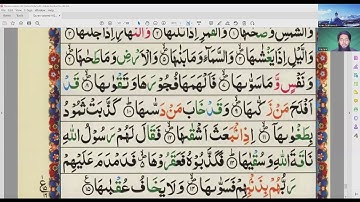 وَالشَّمْسِ وَضُحٰىهَا ۙ۱ وَالْقَمَرِ اِذَا تَلٰىهَا ۙ۲ وَالنَّهَارِ اِذَا جَلّٰىهَا ۙ۳
وَالَّيْلِ اِذَا يَغْشٰىهَا ۙ۴ وَالسَّمَآءِ وَمَا بَنٰىهَا ۙ۵ وَالْاَرْضِ وَمَا طَحٰىهَا ۙ۶
وَنَفْسٍ وَّمَا سَوّٰىهَا ۙ۷ فَاَلْهَمَهَا فُجُوْرَهَا وَتَقْوٰىهَا ۙ۸ قَدْ
اَفْلَحَ مَنْ زَكّٰىهَا ۙ۹ وَقَدْ خَابَ مَنْ دَسّٰىهَا ؕ۱۰ كَذَّبَتْ ثَمُوْدُ
بِطَغْوٰىهَاۤ ۙ۱۱ اِذِ انْۢبَعَثَ اَشْقٰىهَا ۙ۱۲ فَقَالَ لَهُمْ رَسُوْلُ اللّٰهِ
نَاقَةَ اللّٰهِ وَسُقْيٰهَا ؕ۱۳ فَكَذَّبُوْهُ فَعَقَرُوْهَا ۙ فَدَمْدَمَ عَلَيْهِمْ
رَبُّهُمْ بِذَنْۢبِهِمْ فَسَوّٰىهَا ۙ۱۴ وَلَا يَخَافُ عُقْبٰهَا ۱۵